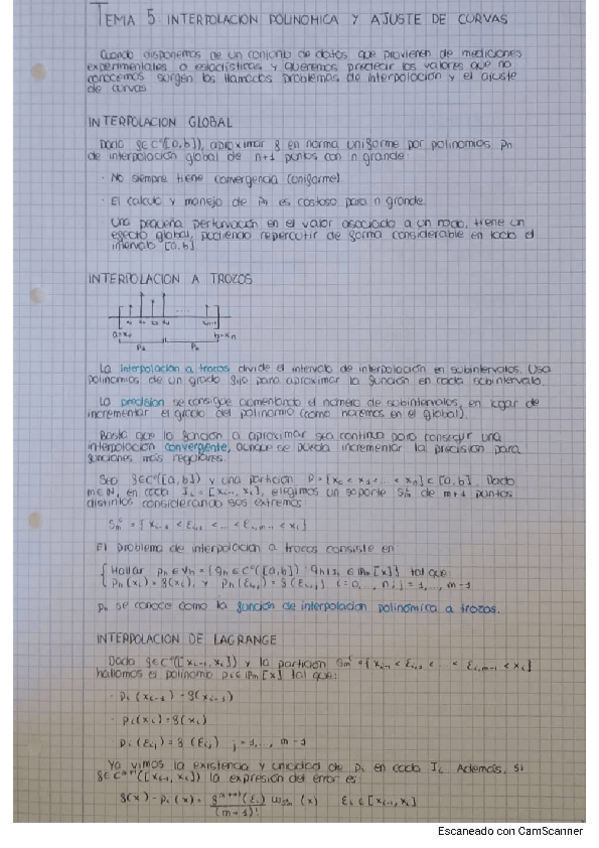 TEMA 5: INTERPOLACION POLINOMICA Y AJUSTE DE CURVAS
Cuando disponemos de un conjunto de datos que provienen de mediciones
experimentales o estadísticas y queremos predecir los valores que no
conocemos surgen los llamados problemas de interpolación y el ajuste
de curvas
INTERPOLACION GLOBAL
Dada f∈C⁰([a,b]), aproximar f en norma uniforme por polinomios Pn
de interpolación global de n+1 puntos con n grande:
· No siempre tiene convergencia (uniforme).
· El calculo y manejo de Pn es costoso para n grande.
Una pequeña perturvación en el valor asociado a un nodo, tiene un
efecto global, pudiendo repercutir de forma considerable en todo el
intervalo [a,b]
INTERPOLACION A TROZOS
a=x₀ b=xn
La interpolación a trozos divide el intervalo de interpolación en subintervalos. Usa
polinomios de un grado fijo para aproximar la función en cada subintervalo.
La precision se consigue aumentando el número de subintervalos, en lugar de
incrementar el grado del polinomio (como haremos en el global).
Basta que la función a aproximar sea continua para conseguir una
interpolación convergente, aunque se pueda incrementar la precisión para
funciones más regulares.
Sea f∈C⁰([a,b]) y una partición P={x₀<x₁<...<xn}⊂[a,b]. Dado
m∈N, en cada Ii=[xi-1,xi], elegimos un soporte Sm de m+1 puntos
distintos considerando sus extremos:
Sm={xi-1<Ei,1<...<Ei,m-1<xi}
El problema de interpolación a trozos consiste en
Hallar pn∈Vn={qn∈C⁰([a,b]): qn|Ii∈Pm[x]} tal que
pn(xi)=f(xi), y pn(Ei,j)=f(Ei,j) i=0,...,n; j=1,...,m-1
pn se conoce como la función de interpolación polinómica a trozos.
INTERPOLACION DE LAGRANGE
Dada f∈C⁰([xi-1,xi]) y la partición Sm={xi-1<Ei,1<...<Ei,m-1<xi}
hallamos el polinomio pi∈Pm[x] tal que:
· pi(xi-1)=f(xi-1)
· pi(xi)=f(xi)
pi(Ei,j)=f(Ei,j) j=1,...,m-1
Ya vimos la existencia y unicidad de pi en cada Ii. Además, si
f∈Cᵐ⁺¹([xi-1,xi]) la expresión del error es:
Escaneado con CamScanner